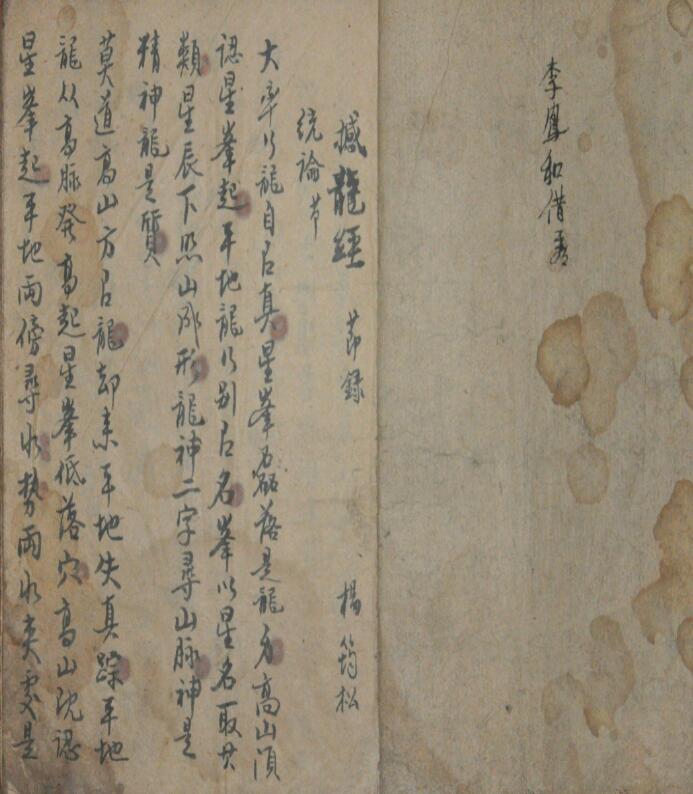 李鳳和借
撼龍經 莭録 楊筠松
統論节
大率行龍自有真星峯磊落是龍身高山須
認星峯起平地龍行别有名峯以星名取其
類星辰下照山成形龍神二字尋山脉神是
精神龍是質
莫道高山方有龍却来平地失真踪平地
龍从高脉發高起星峯低落穴高山既認
星峯起平地兩傍尋水勢兩水夾處是